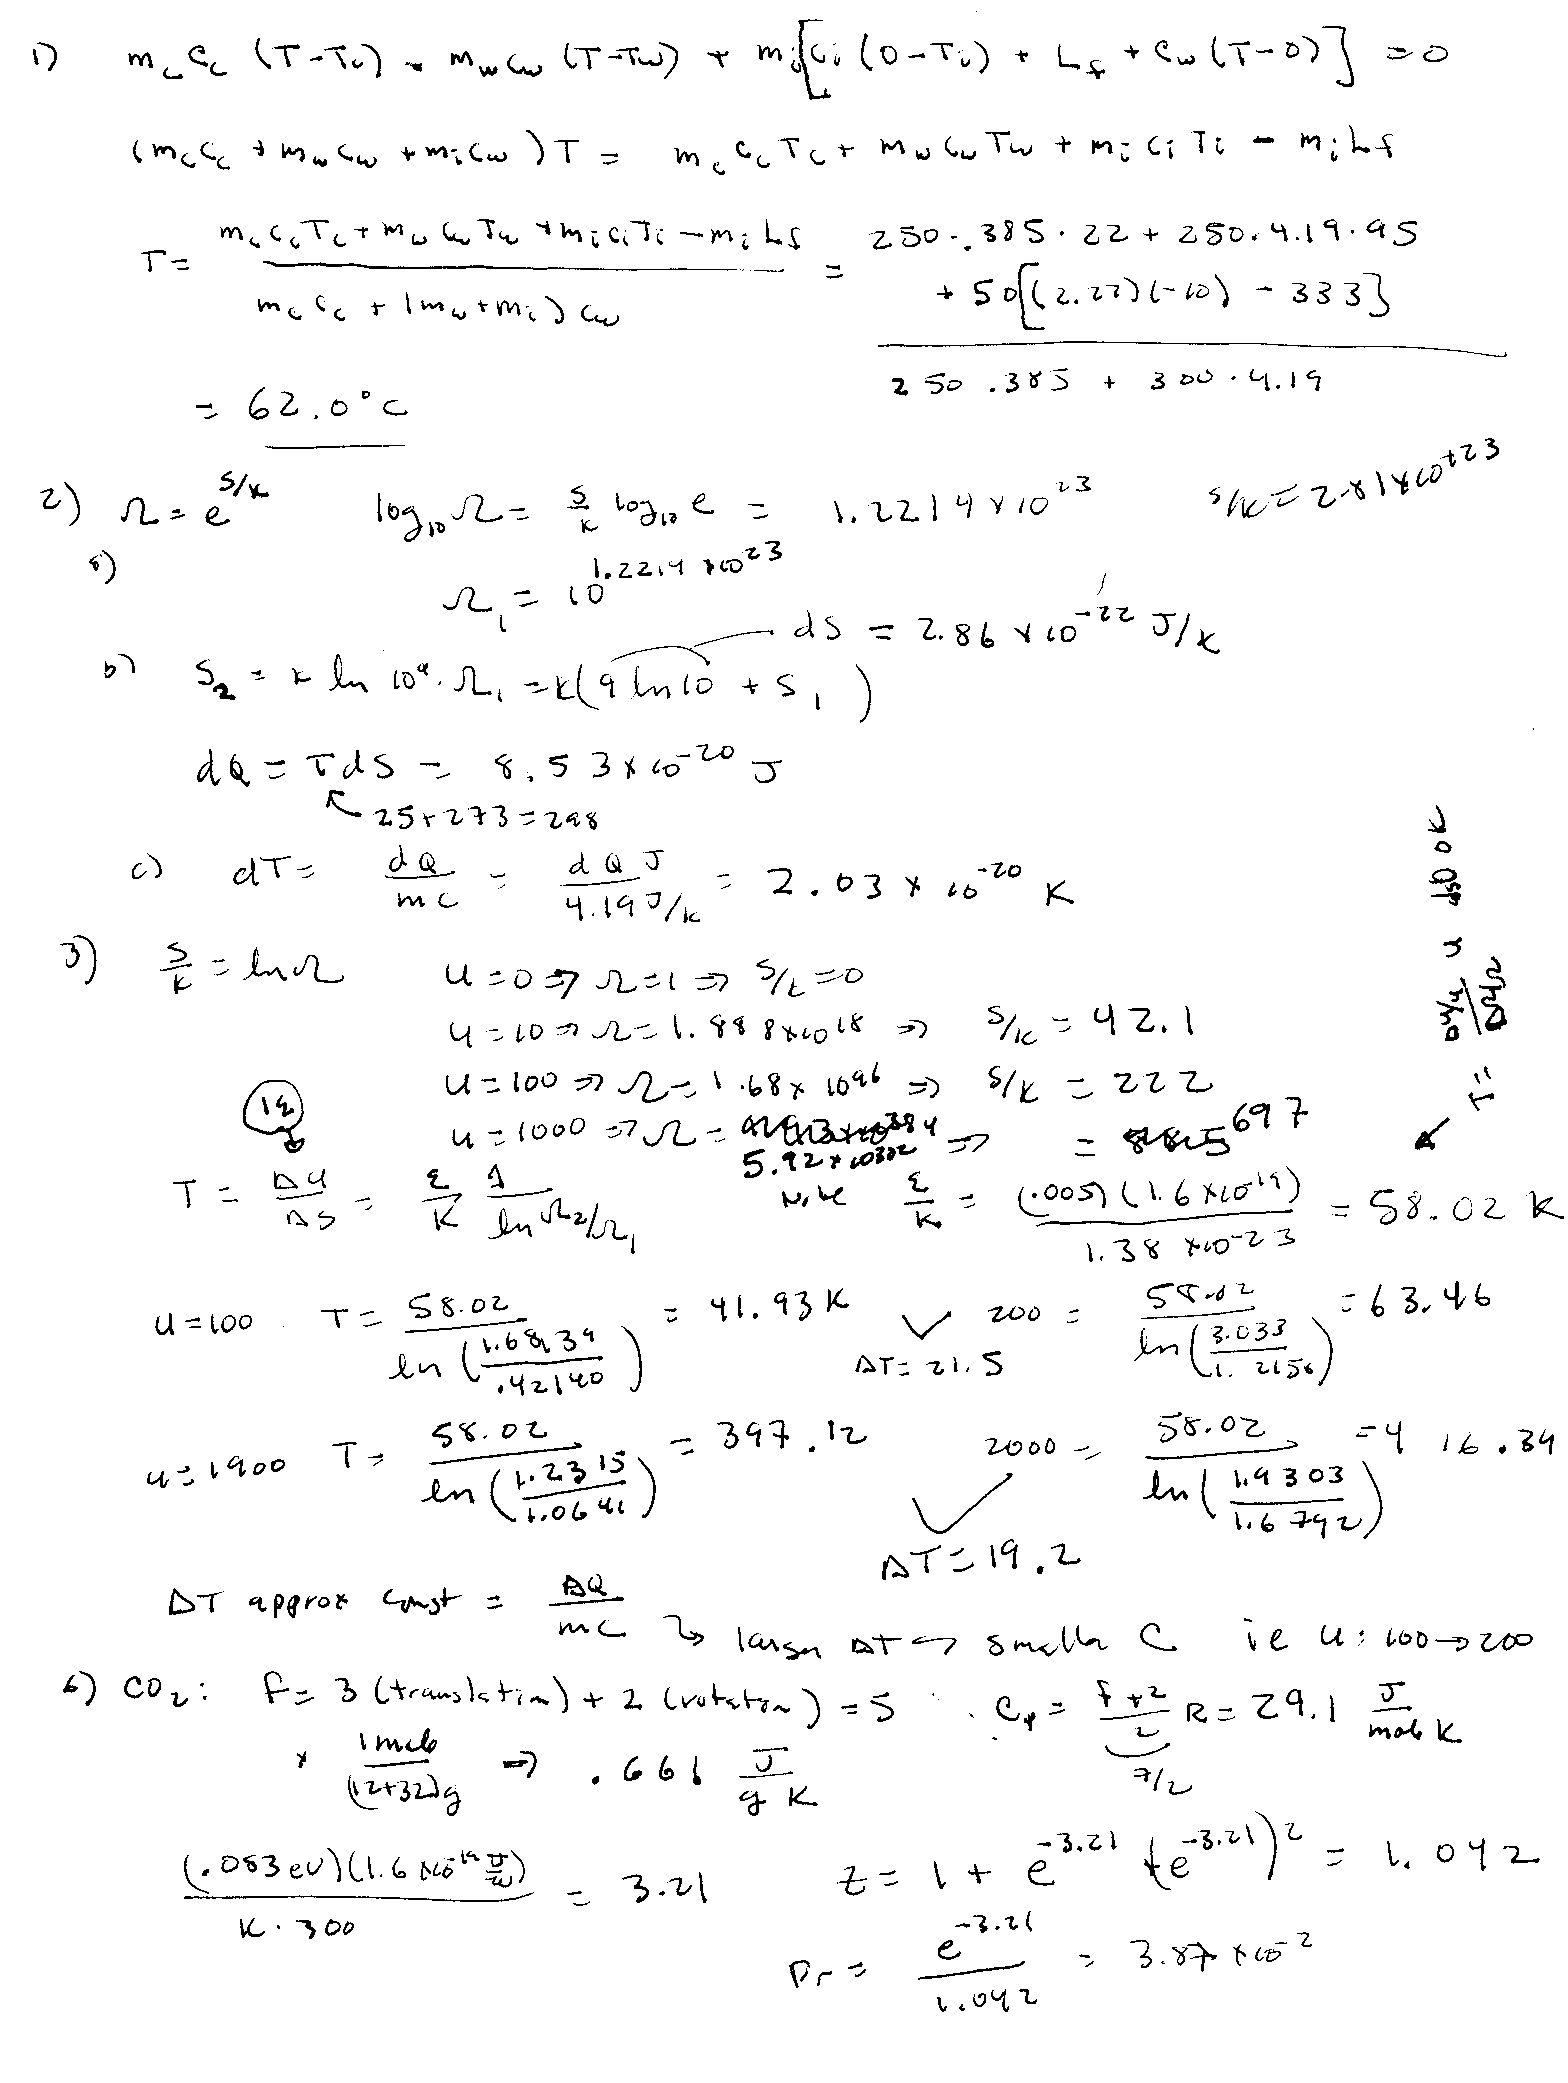 1) m_c c_c (T-T_c) + m_w c_w (T-T_w) + m_i[c_i (0-T_i) + L_f + c_w (T-0)] = 0
(m_c c_c + m_w c_w + m_i c_w) T = m_c c_c T_c + m_w c_w T_w + m_i c_i T_i - m_i L_f
T = (m_c c_c T_c + m_w c_w T_w + m_i c_i T_i - m_i L_f) / (m_c c_c + (m_w + m_i) c_w) = (250 · .385 · 22 + 250 · 4.19 · 95 + 50[(2.22)(-10) - 333]) / (250 · .385 + 300 · 4.19)
= 62.0°C
2) Ω = e^{S/k} log_10 Ω = S/k log_10 e = 1.2214 × 10^23 S/k = 2.81 × 10^{+23}
a) Ω_1 = 10^{1.2214 × 10^23}
dS = 2.86 × 10^-22 J/K
b) S_2 = k ln 10^9 · Ω_1 = k(9 ln 10 + S_1)
dQ = T dS = 8.53 × 10^-20 J
25 + 273 = 298
c) dT = dQ / mc = dQ J / 4.19 J/K = 2.03 × 10^-20 K
3) S/k = ln Ω u = 0 ⇒ Ω = 1 ⇒ S/k = 0
u = 10 ⇒ Ω = 1.888 × 10^18 ⇒ S/k = 42.1
u = 100 ⇒ Ω = 1.68 × 10^96 ⇒ S/k = 222
u = 1000 ⇒ Ω = 5.92 × 10^302 ⇒ = 697
1ε
T = ΔU/ΔS = ε/k 1/(ln Ω_2/Ω_1) Note ε/k = (.005)(1.6 × 10^-19) / 1.38 × 10^-23 = 58.02 K
u = 100 T = 58.02 / ln(1.6839 / .42140) = 41.93 K ✓ 200 = 58.02 / ln(3.033 / 1.2156) = 63.46
ΔT = 21.5
u = 1900 T = 58.02 / ln(1.2315 / 1.0641) = 397.12 2000 = 58.02 / ln(1.9303 / 1.6792) = 416.34
✓ ΔT = 19.2
ΔT approx const = ΔQ / mc ↳ larger ΔT → smaller C ie u: 100 → 200
6) CO_2: f = 3 (translation) + 2 (rotation) = 5 ∴ C_p = (f+2)/2 R = 29.1 J / mole K
7/2
× 1 mole / (12+32)g ⇒ .661 J / g K
(.083 eV)(1.6 × 10^-19 J/eV) / k · 300 = 3.21 Z = 1 + e^{-3.21} + (e^{-3.21})^2 = 1.042
Pr = e^{-3.21} / 1.042 = 3.87 × 10^-2